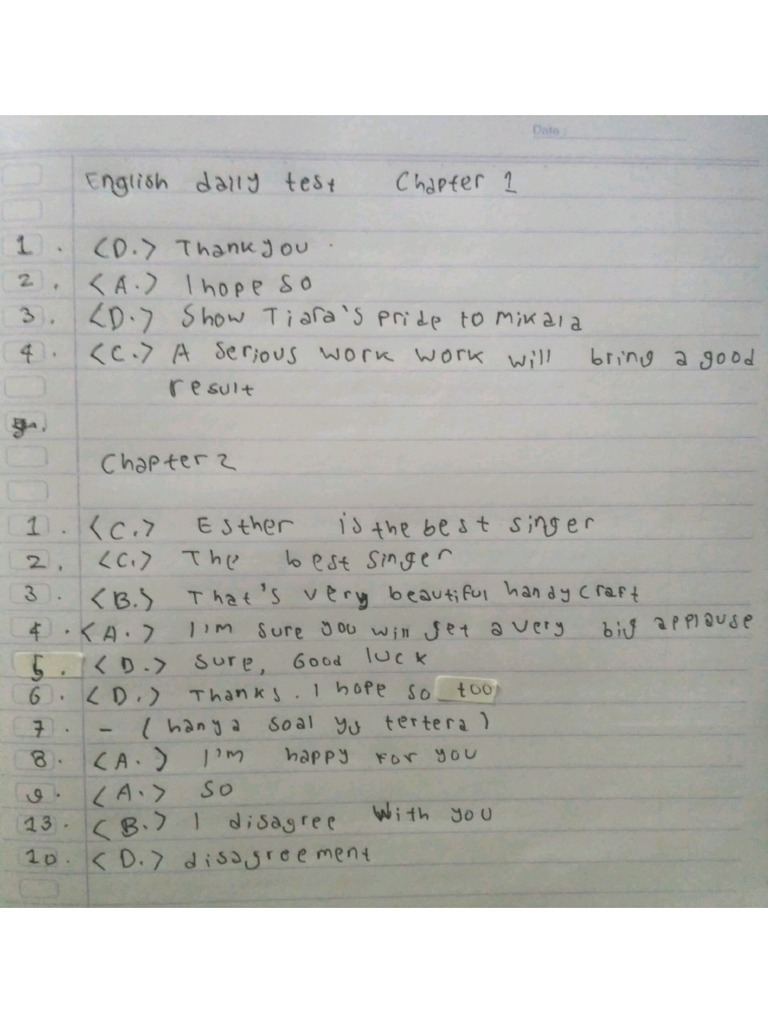 Date
English daily test Chapter 1
1. <D.> Thank you
2. <A.> I hope so
3. <D.> Show Tiara's pride to mikala
4. <C.> A serious work work will bring a good
result
Chapter 2
1. <C.> Esther is the best singer
2. <C.> The best singer
3. <B.> That's very beautiful handycraft
4. <A.> I'm sure you will get a very big applause
5. <D.> Sure, Good luck
6. <D.> Thanks. I hope so too
7. - (hanya soal yg tertera)
8. <A.> I'm happy for you
9. <A.> so
13. <B.> I disagree with you
10. <D.> disagreement